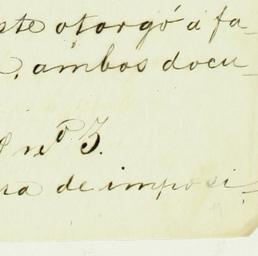 ste otorgó á fa-
, ambos docu-
nº 3.
ra de imposi-